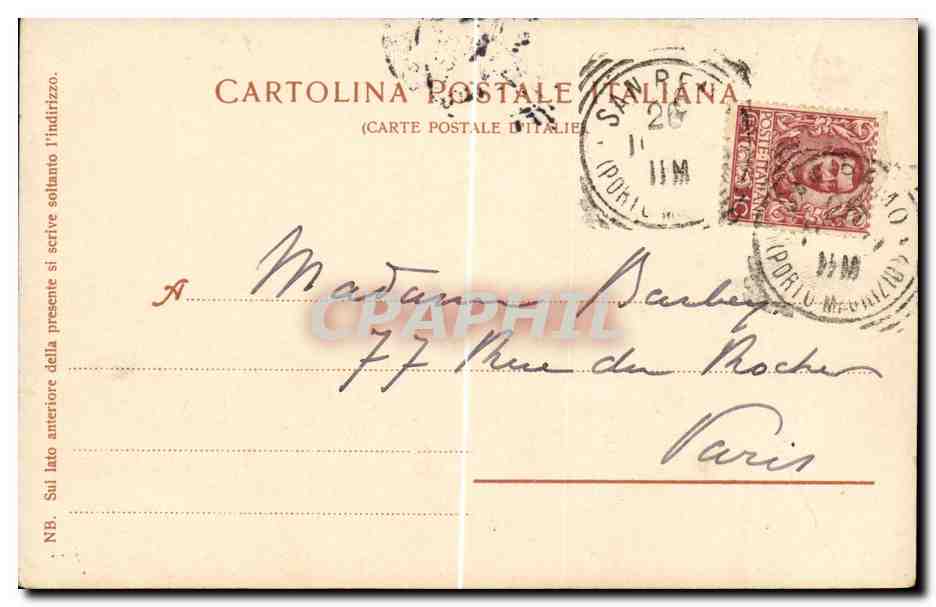 CARTOLINA POSTALE ITALIANA
(CARTE POSTALE D'ITALIE).
SAN REM
26
11M
(PORTO M
POSTE·ITALIANE
EMO
11M
(PORTO MAURIZIO)
A Madame Barbey
77 Rue du Rocher
Paris
CPAPHIL
NB. Sul lato anteriore della presente si scrive soltanto l'indirizzo.